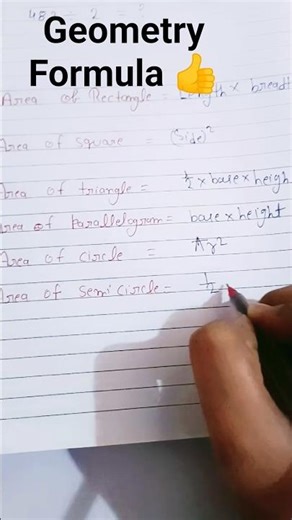 Geometry
Formula 👍
Area of Rectangle = Length × breadt
Area of square = (Side)²
Area of triangle = ½ × base × heigh
Area of Parallelogram = base × height
Area of circle = πr²
Area of Semi Circle = ½